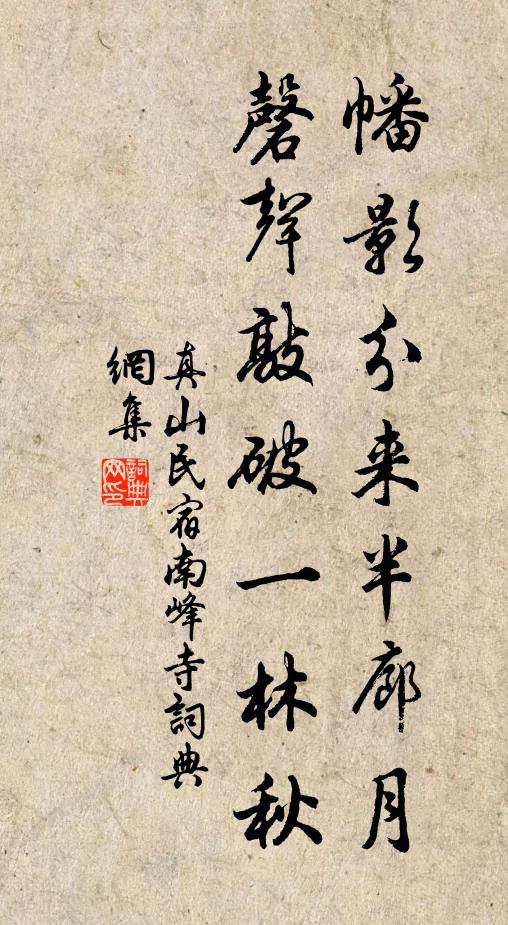 幡影分来半廊月
磬聲敲破一林秋
真山民宿南峰寺詞典
網集
詞典
网印